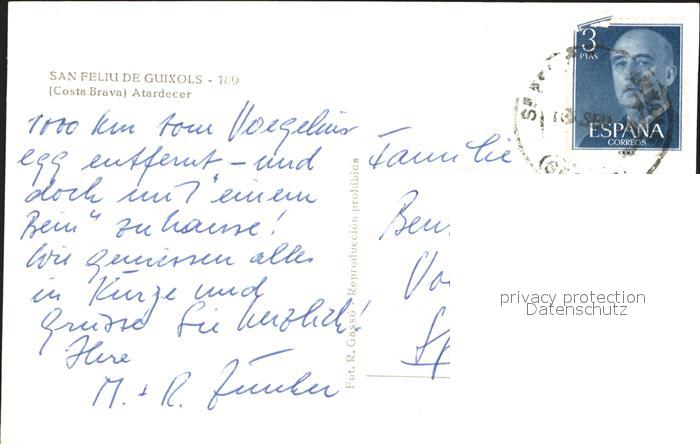 SAN FELIU DE GUIXOLS - 189
(Costa Brava) Atardecer
1000 km vom Voegelins
egg entfernt – und
doch mit "einem
Bein" zuhause!
Wir geniessen alles
in Kürze und
grüsse Sie herzlich!
Ihre
M. + R.
Fot. R. Gasso - Reproducción prohibida
Familie
3
PTAS
ESPAÑA
CORREOS
SEP
privacy protection
Datenschutz